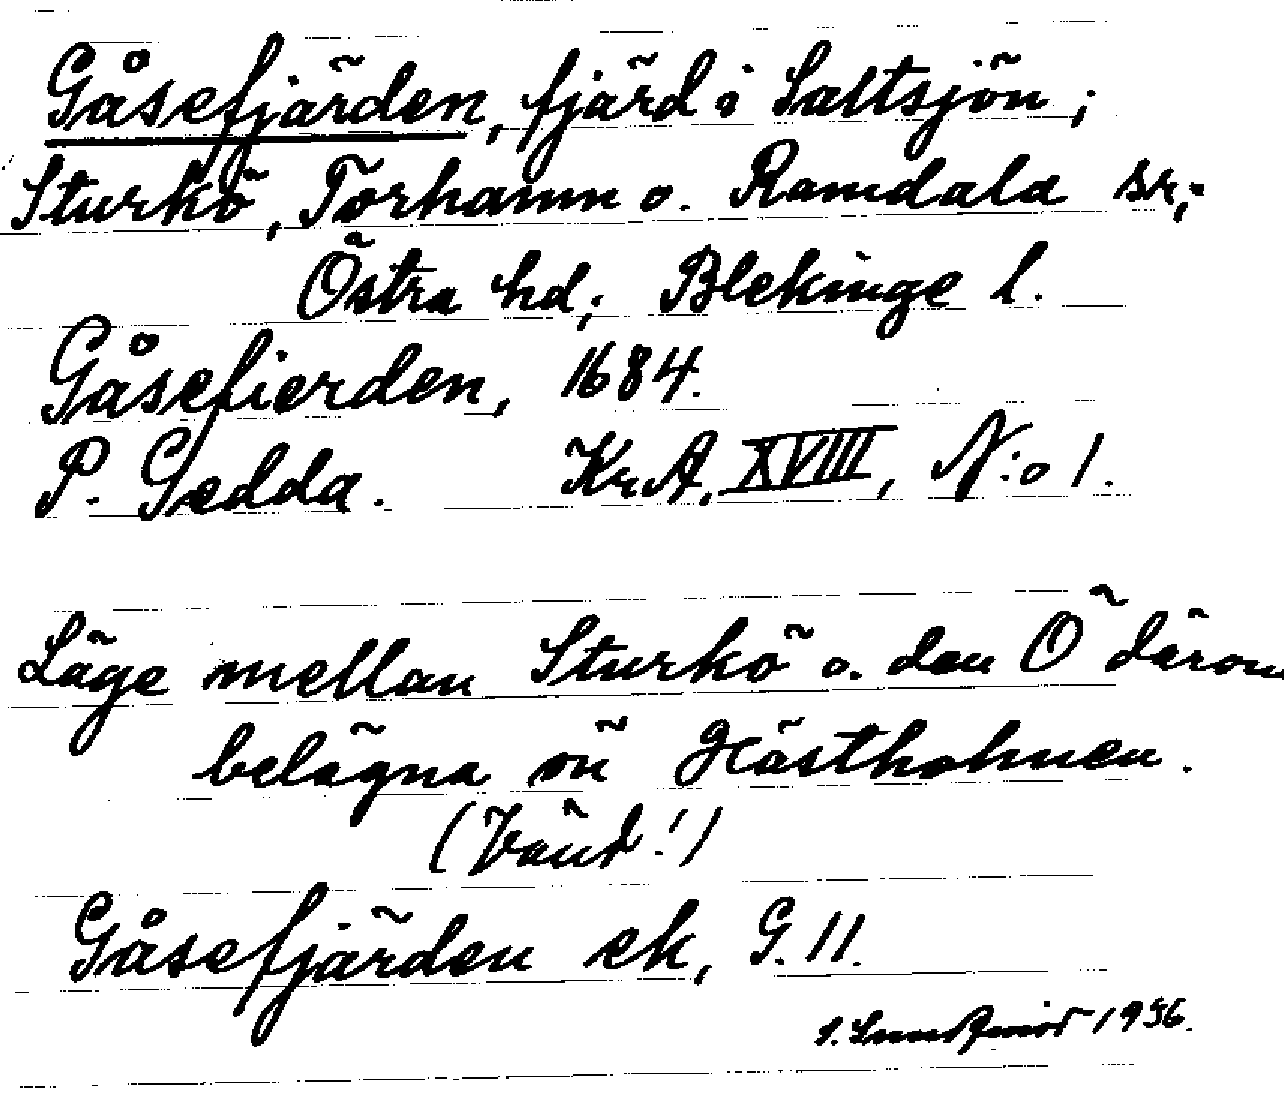 Gåsefjärden, fjärd i Saltsjön;
Sturkö, Torhamn o. Ramdala sn;
Östra hd; Blekinge l.
Gåsefierden, 1684.
P. Gedda. Kr.A, XVIII, N:o 1.
Läge mellan Sturkö o. den Ö därom
belägna ön Hästholmen.
(Vänd!)
Gåsefjärden ek, G. 11.
1956.